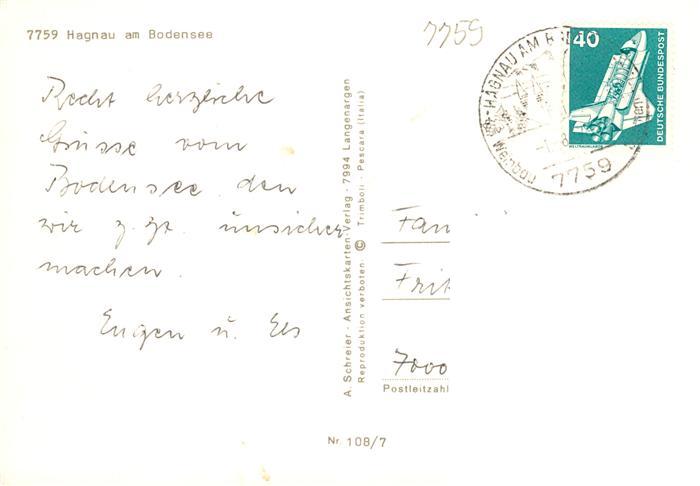 7759 Hagnau am Bodensee
7759
HAGNAU AM
7759
40
DEUTSCHE BUNDESPOST
WELTRAUMLABOR
Recht herzliche
Grüsse vom
Bodensee den
wir z. Zt. unsicher
machen.
Eugen u. Els
A. Schreier - Ansichtskarten-Verlag - 7994 Langenargen
Reproduktion verboten © Trimboli - Pescara (Italia)
Fam
Frit
7000
Postleitzahl
Nr. 108/7